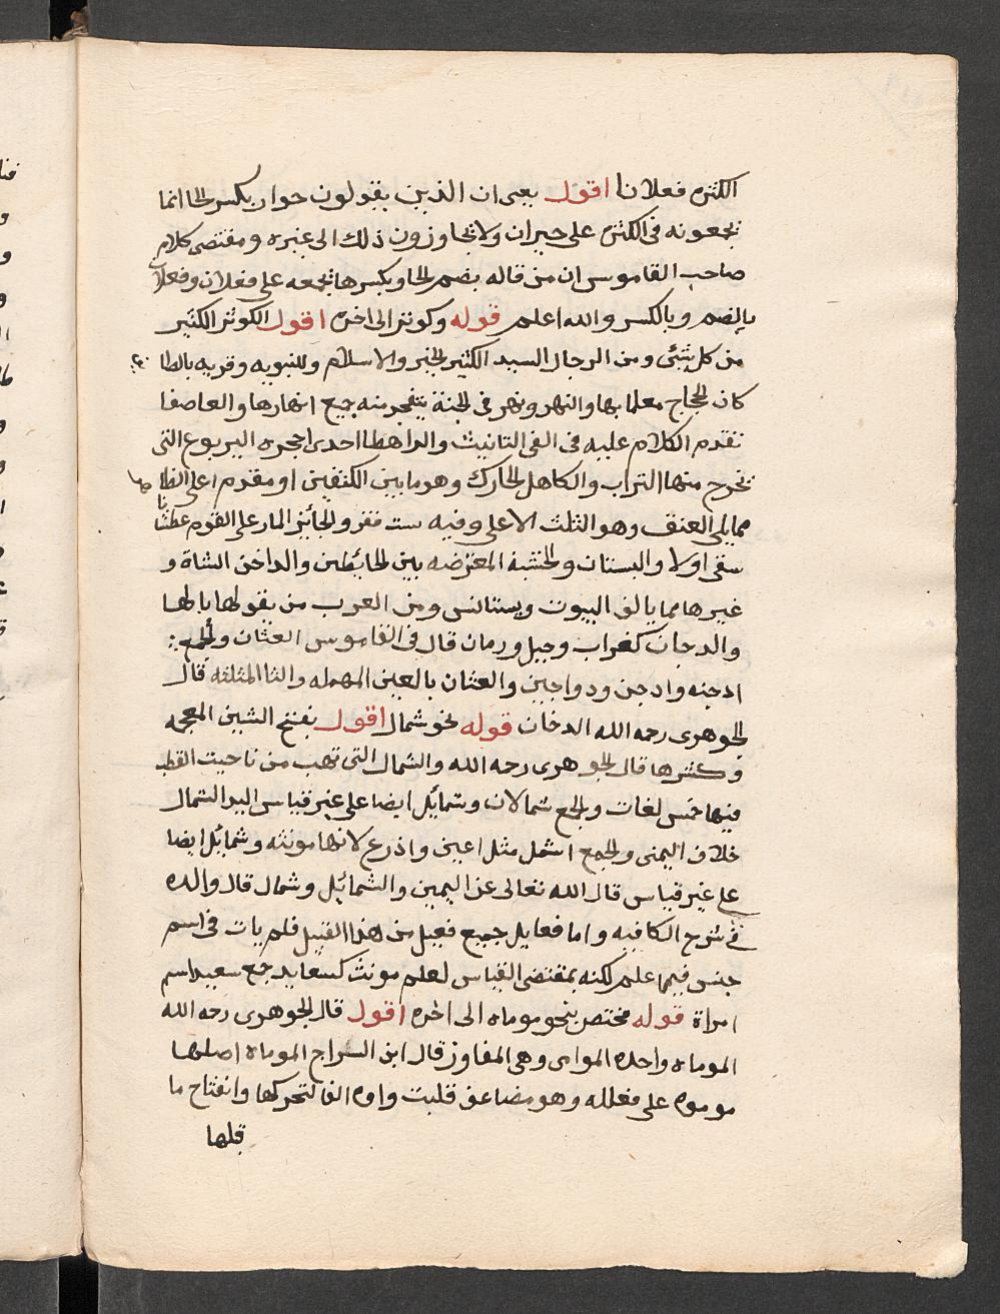 الكثره فعلانا اقول يعنى ان الذين يقولون حوار بكسر الحا انما
يجمعونه فى الكثره على حيران ولا يتجاوزون ذلك الى غيره ومقتضى كلام
صاحب القاموس ان من قاله بضم الحا وبكسرها يجمعه على فعلان وفعلان
بالضم وبالكسر والله اعلم قوله وكوثر الى اخره اقول الكوثر الكثير
من كل شئ ومن الرجال السيد الكثير الخير والاسلام والنبويه وقريه بالطا
كان الحجاج معلما بها والنهر ونهر فى الجنة يتفجر منه جميع انهارها والعاصفا
تقدم الكلام عليه فى الفى التانيث والراهطا احدى احجره اليربوع التى
تخرج منها التراب والكاهل الحارك وهو ما بين الكتفين او مقدم اعلى الظا
مما يلى العنق وهو الثلث الاعلى وفيه ست فقر والجائز المار على القوم عطشانا
سقى اولا والبستان والخشبة المعترضه بين الحائطين والداجن الشاة و
غيرها مما يالف البيوت ويستانس ومن العرب من يقولها بالها
والدخان كغراب وجبل ورمان قال فى القاموس العثان والجمع
ادخنه وادخن ودواخين والعثان بالعين المهمله والثا المثلثه قال
الجوهرى رحمه الله الدخان قوله نحو شمال اقول بفتح الشين المعجمه
وكسرها قال الجوهرى رحمه الله والشمال التى تهب من ناحيت القطب
فيها خمس لغات والجمع شمالات وشمايل ايضا على غير قياس اليد الشمال
خلاف اليمنى والجمع اشمل مثل اعين واذرع لانها مونثه وشمايل ايضا
على غير قياس قال الله تعالى عن اليمين والشمائل وشمال قال والده
فى شرح الكافيه واما فعايل جمع فعيل من هذا القبيل فلم يات فى اسم
جنس فيما اعلم لكنه بمقتضى القياس لعلم مونث كسعايد جمع سعيد اسم
امراة قوله مختص بنحو موماه الى اخره اقول قال الجوهرى رحمه الله
الموماه واحده الموامى وهى المفاوز قال ابن السراج الموماه اصلها
موموه على فعلله وهو مضاعف قلبت واوه الفا لتحركها وانفتاح ما
قبلها